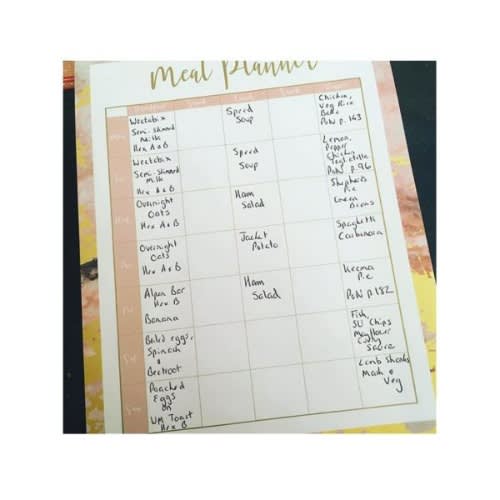 Meal Planner
Breakfast Snack Lunch Snack
Mon
Weetabix
Semi-Skimmed
milk
Hex A+B
Speed
Soup
Chicken,
Veg Rice
Bake
PoN p.163
Weetabix
Semi-Skimmed
Milk
Hex A+B
Speed
Soup
Lemon,
Pepper
Chicken
Tagliatelle
PoN p.96
Wed
Overnight
Oats
Hex A+B
Ham
Salad
Shepherds
Pie
Green
Beans
Overnight
Oats
Hex A+B
Jacket
Potato
Spaghetti
Carbonara
Fri
Alpen Bar
Hex B
Banana
Ham
Salad
Keema
Pie
PoN p.182
Sat
Baked eggs,
Spinach
+
Beetroot
Fish,
SW Chips
Mayflower
Curry
Sauce
Sun
Poached
Eggs
on
WM Toast
Hex B
Lamb Shanks
Mash +
Veg